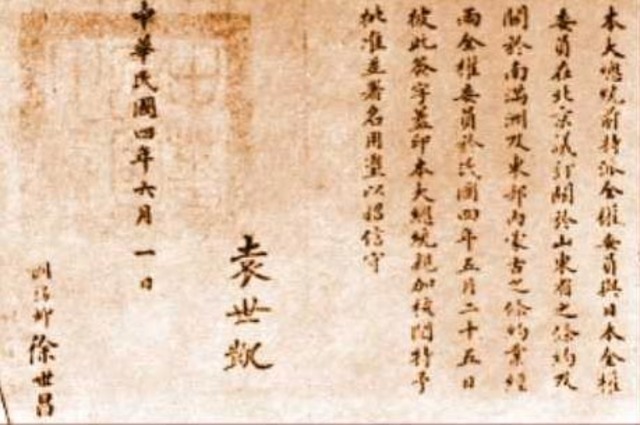 本大總統前特派全權委員與日本全權
委員在北京議訂關於山東省之條約及
關於南滿洲及東部內蒙古之條約業經
兩全權委員於民國四年五月二十五日
彼此簽字蓋印本大總統親加核閱特予
批准並署名用璽以昭信守
袁世凱
中華民國四年六月一日
國務卿徐世昌